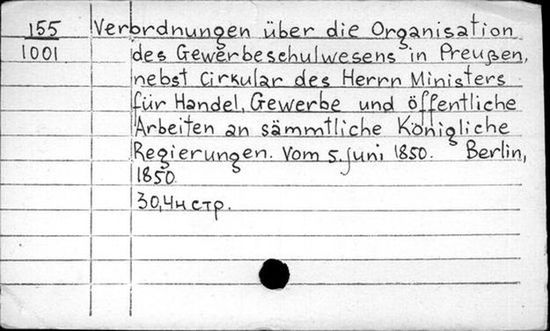 155 Verordnungen über die Organisation
1001 des Gewerbeschulwesens in Preußen,
nebst Cirkular des Herrn Ministers
für Handel, Gewerbe und öffentliche
Arbeiten an sämmtliche Königliche
Regierungen. Vom 5. Juni 1850. Berlin,
1850.
30,4н стр.